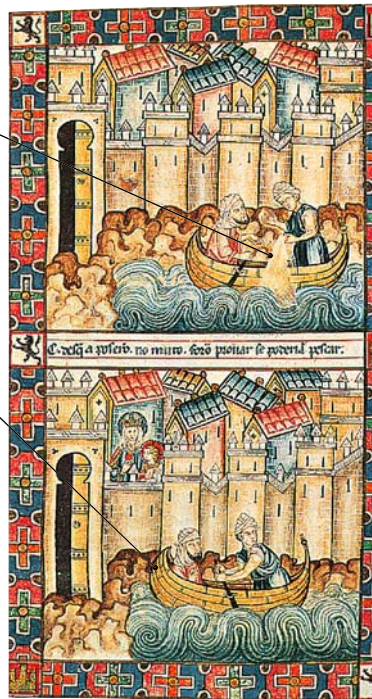 C. desq̃ a poserõ. no muro. forõ prouar se poderiã pescar.